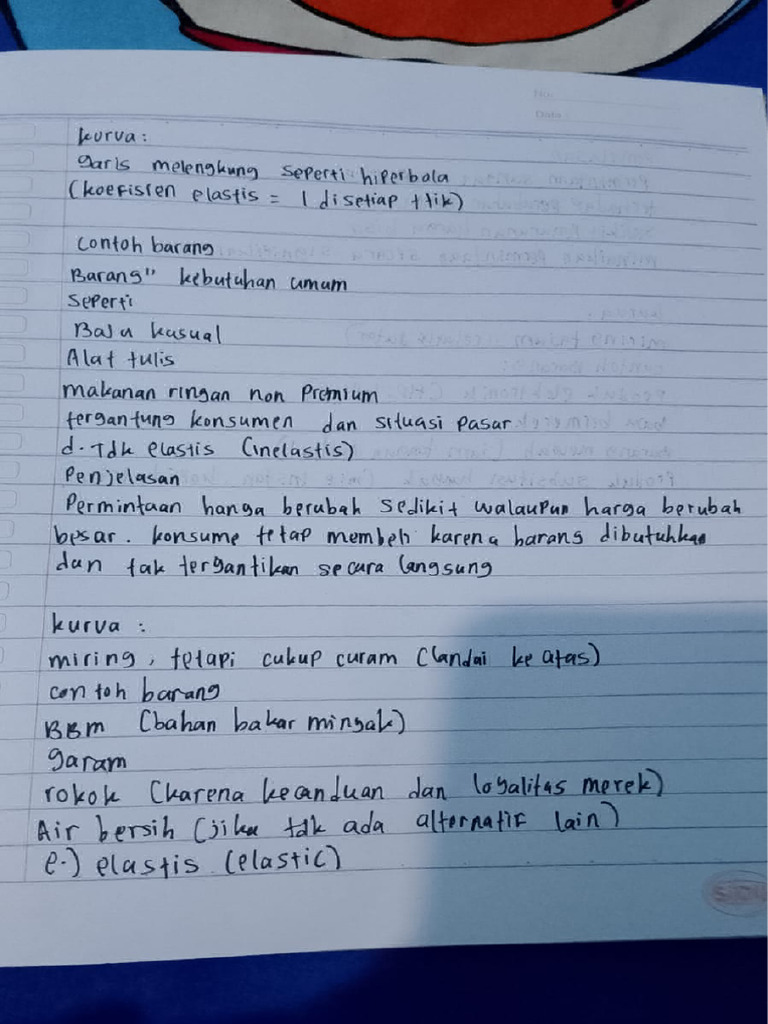 No.
Date
kurva :
garis melengkung seperti hiperbola
(koefisien elastis = 1 disetiap ttik)
contoh barang
Barang" kebutuhan umum
seperti
Baju kasual
Alat tulis
makanan ringan non Premium
tergantung konsumen dan situasi pasar
d. Tdk elastis (inelastis)
Penjelasan
Permintaan hanga berubah sedikit walaupun harga berubah
besar. konsume tetap membeli karena barang dibutuhkan
dan tak tergantikan secara langsung
kurva :
miring, tetapi cukup curam (landai ke atas)
contoh barang
BBm (bahan bakar mingak)
garam
rokok (karena kecanduan dan loyalitas merek)
Air bersih (jika tdk ada alternatif lain)
e.) elastis (elastic)
SIDU